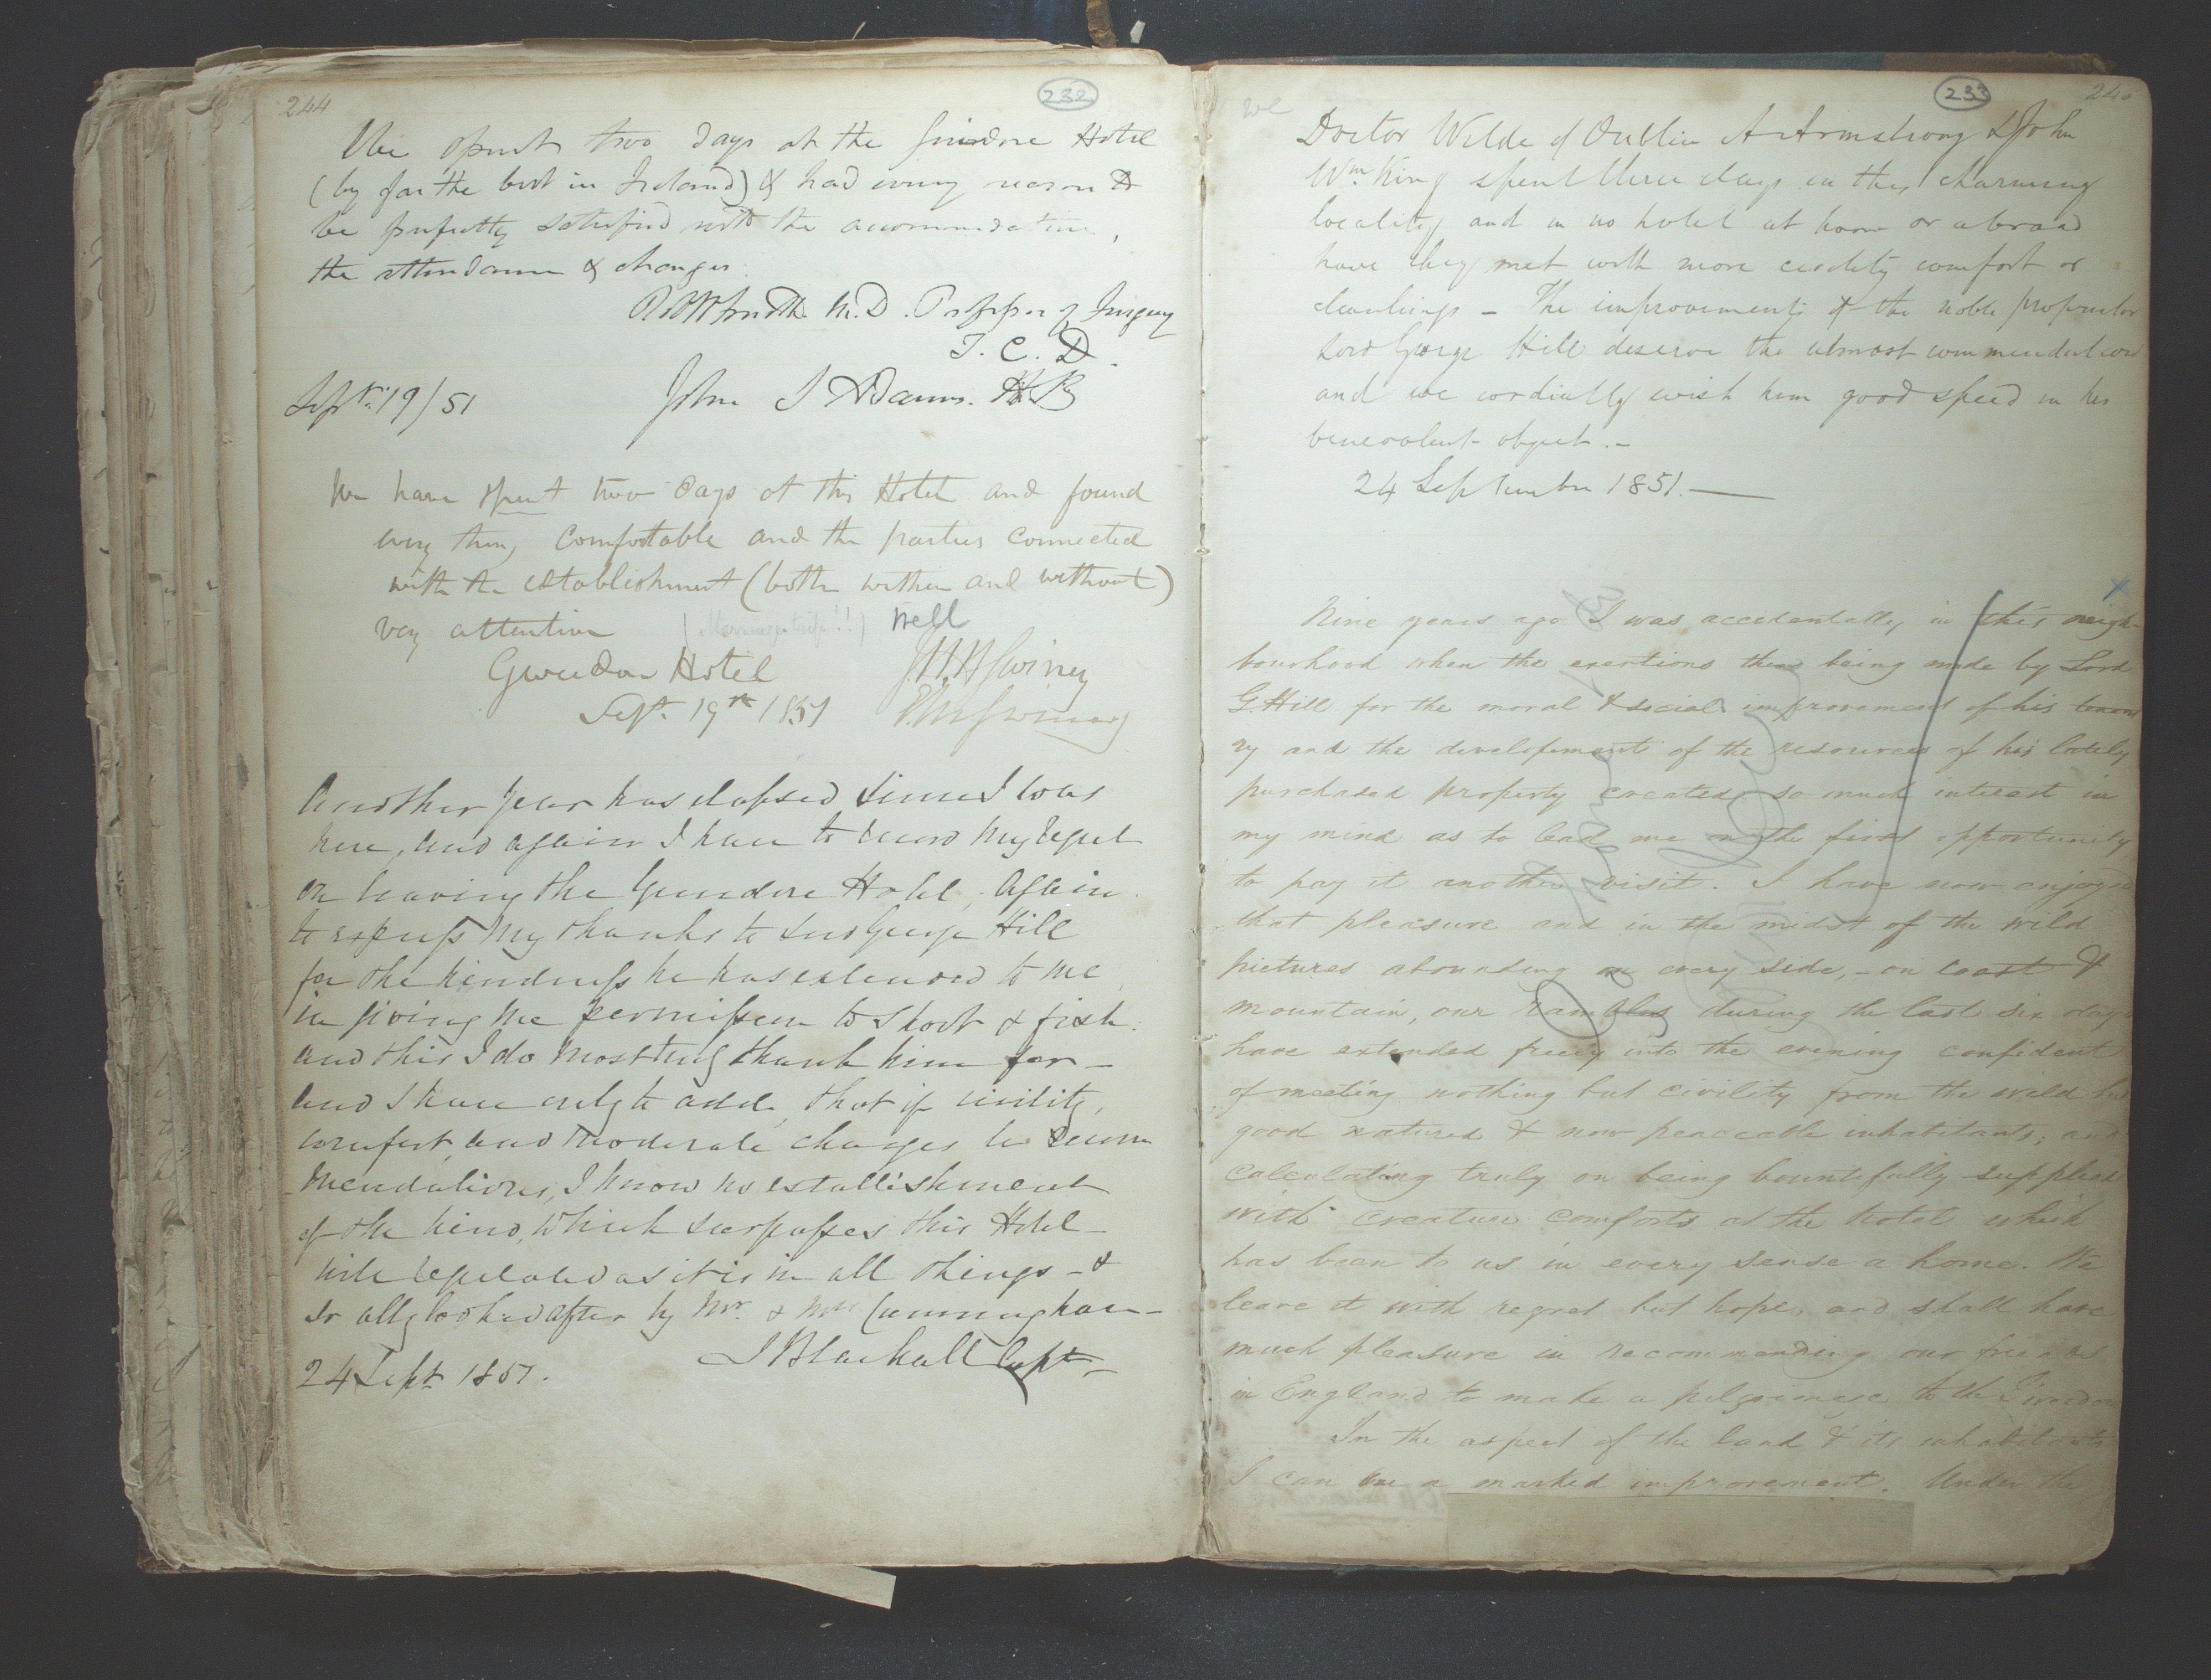 244
232
We spent two days at the Guidore Hotel
(by far the best in Ireland) & had every reason to
be perfectly satisfied with the accommodation,
the attendance & charges.
R W Smith. M.D. Professor of Surgery
T. C. D.
Septr. 19/51
John Adams.
We have spent two days at this Hotel and found
every thing comfortable and the parties connected
with the establishment (both within and without)
very attentive (Marriage trip!!) Well
Gweedor Hotel
Sept. 19th 1851
Another year has elapsed since I was
here, and again I have to record my regret
on leaving the Gweedore Hotel, again
to express my thanks to Lord George Hill
for the kindness he has extended to me
in giving me permission to shoot & fish:
and this I do most truly thank him for—
and I have only to add, that if civility,
comfort, and moderate charges be recom
mendations, I know no establishment
of the kind, which surpasses this Hotel—
well regulated as it is in all things — &
so ably looked after by Mr. & Mrs Cunningham—
J Blackall Capt—
24 Sept 1851.
233
245
Doctor Wilde of Dublin A Armstrong & John
Wm King spent three days in this charming
locality and in no hotel at home or abroad
have they met with more civility comfort or
cleanlings — The improvements of the noble proprietor
Lord George Hill deserve the utmost commendation
and we cordially wish him good speed in his
benevolent object.—
24 September 1851.—
Nine years ago I was accidentally in this neigh-
bourhood when the exertions then being made by Lord
G. Hill for the moral & social improvement of his tenant
ry and the developement of the resources of his lately
purchased property created so much interest in
my mind as to lead me on the first opportunity
to pay it another visit. I have now enjoyed
that pleasure and in the midst of the wild
pictures abounding on every side, – on coast &
mountain, our rambles during the last six days
have extended freely into the evening confident
of meeting nothing but civility from the wild but
good natured & now peaceable inhabitants; and
calculating truly on being bountifully supplied
with creature comforts at the hotel which
has been to us in every sense a home. We
leave it with regret but hope, and shall have
much pleasure in recommending our friends
in England to make a pilgrimage to the Gweedor
In the aspect of the land & its inhabitants
I can see a marked improvement. Under the